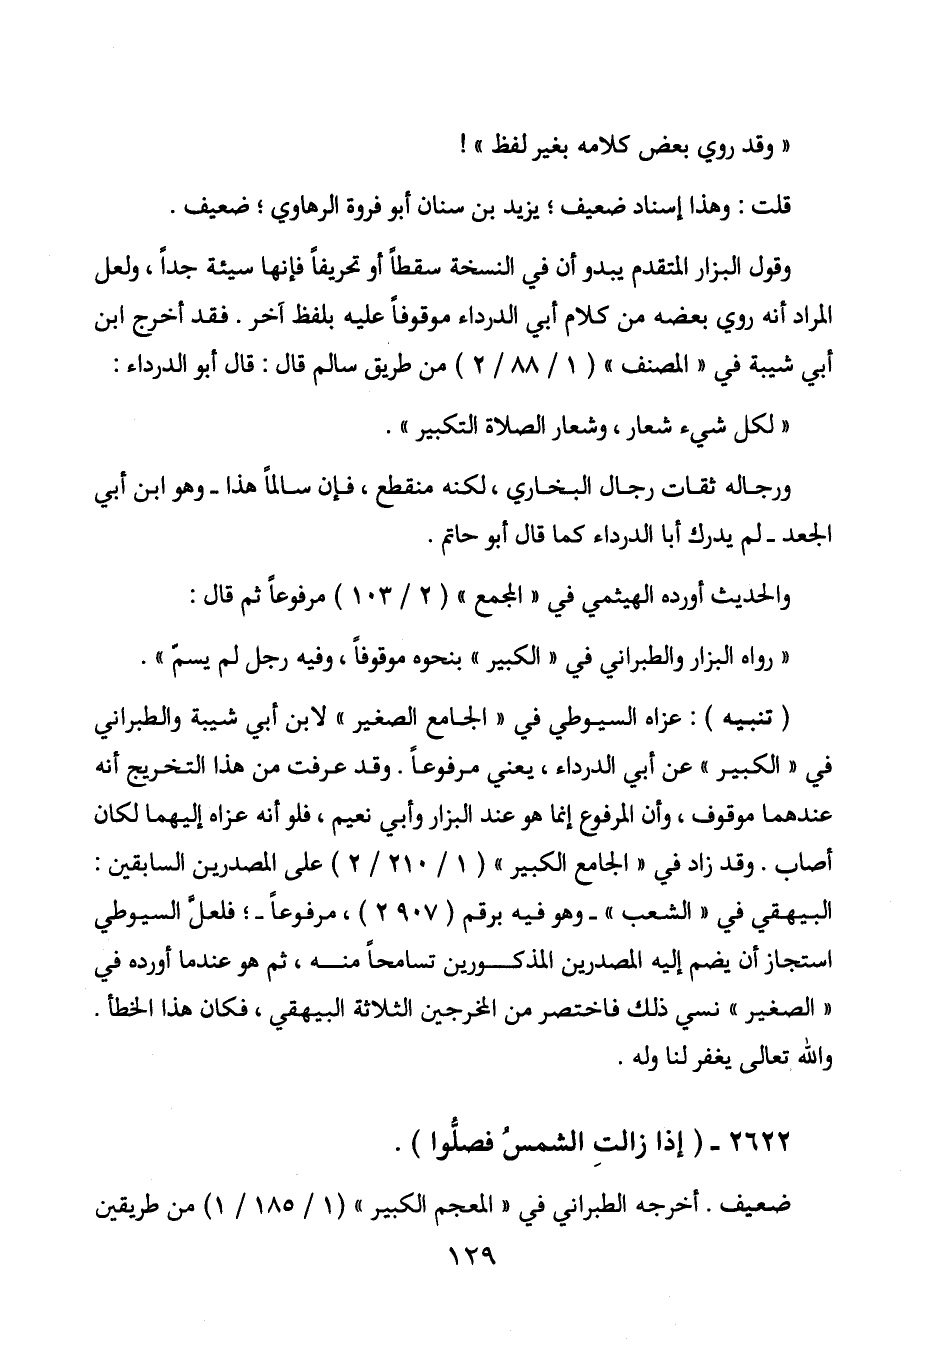 « وقد روي بعض كلامه بغير لفظ » !
قلت : وهذا إسناد ضعيف ؛ يزيد بن سنان أبو فروة الرهاوي ؛ ضعيف .
وقول البزار المتقدم يبدو أن في النسخة سقطاً أو تحريفاً فإنها سيئة جداً ، ولعل
المراد أنه روي بعضه من كلام أبي الدرداء موقوفاً عليه بلفظ آخر . فقد أخرج ابن
أبي شيبة في « المصنف » ( ١ / ٨٨ / ٢ ) من طريق سالم قال : قال أبو الدرداء :
« لكل شيء شعار ، وشعار الصلاة التكبير » .
ورجاله ثقات رجال البخاري ، لكنه منقطع ، فإن سالماً هذا ـ وهو ابن أبي
الجعد ـ لم يدرك أبا الدرداء كما قال أبو حاتم .
والحديث أورده الهيثمي في « المجمع » ( ٢ / ١٠٣ ) مرفوعاً ثم قال :
« رواه البزار والطبراني في « الكبير » بنحوه موقوفاً ، وفيه رجل لم يسمّ » .
( تنبيه ) : عزاه السيوطي في « الجامع الصغير » لابن أبي شيبة والطبراني
في « الكبير » عن أبي الدرداء ، يعني مرفوعاً . وقد عرفت من هذا التخريج أنه
عندهما موقوف ، وأن المرفوع إنما هو عند البزار وأبي نعيم ، فلو أنه عزاه إليهما لكان
أصاب . وقد زاد في « الجامع الكبير » ( ١ / ٢١٠ / ٢ ) على المصدرين السابقين :
البيهقي في « الشعب » ـ وهو فيه برقم ( ٢٩٠٧ ) ، مرفوعاً ـ ؛ فلعلَّ السيوطي
استجاز أن يضم إليه المصدرين المذكورين تسامحاً منه ، ثم هو عندما أورده في
« الصغير » نسي ذلك فاختصر من المخرجين الثلاثة البيهقي ، فكان هذا الخطأ .
والله تعالى يغفر لنا وله .
٢٦٢٢ ـ ( إذا زالتِ الشمسُ فصلُّوا ) .
ضعيف . أخرجه الطبراني في « المعجم الكبير » (١ / ١٨٥ / ١) من طريقين
١٢٩